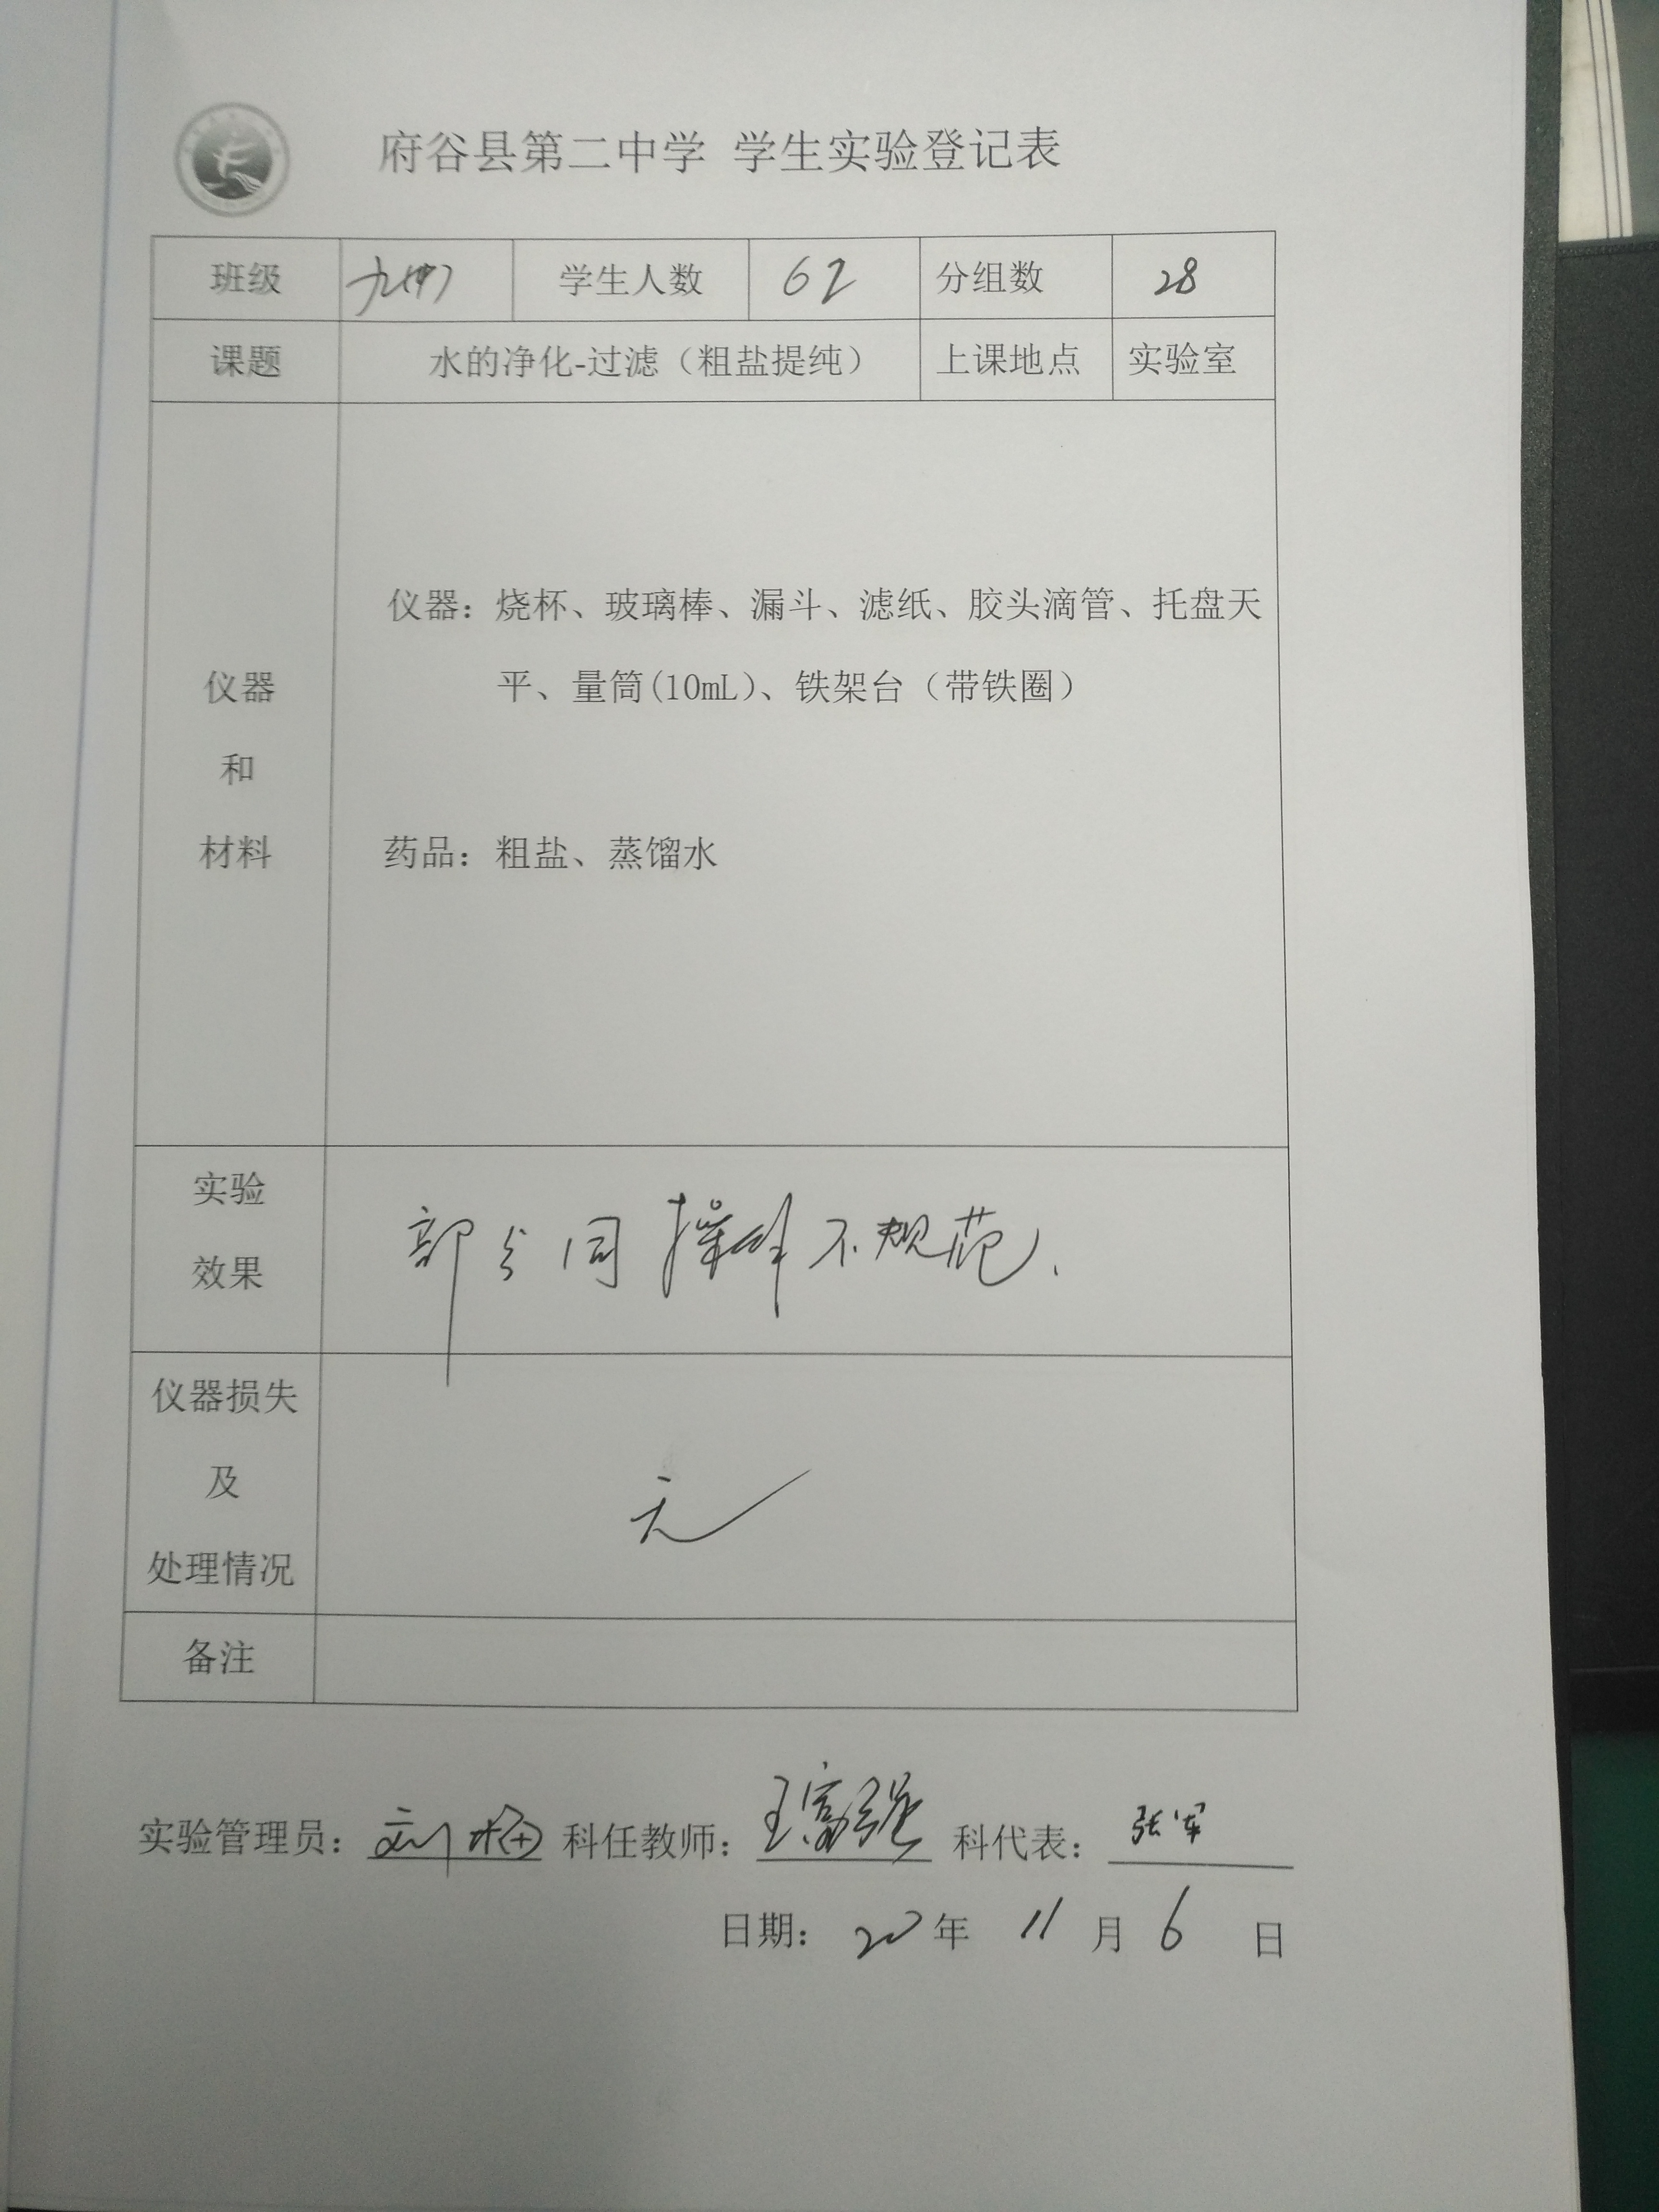 府谷县第二中学 学生实验登记表
班级 学生人数 62 分组数 28
课题 水的净化-过滤（粗盐提纯） 上课地点 实验室
仪器：烧杯、玻璃棒、漏斗、滤纸、胶头滴管、托盘天
平、量筒(10mL)、铁架台（带铁圈）
仪器
和
材料
药品：粗盐、蒸馏水
实验
效果
部分同操作不规范.
仪器损失
及
处理情况
无
备注
实验管理员：刘梅 科任教师：王富强 科代表：张军
日期：20年 11月 6日